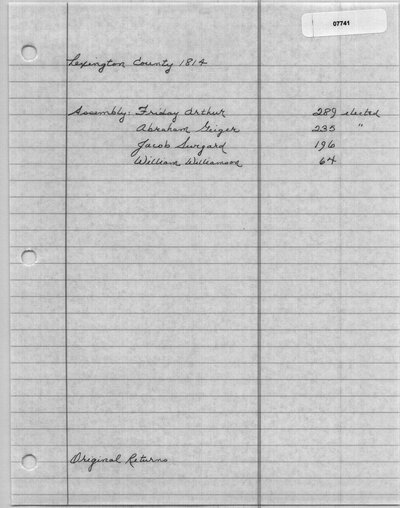 07741
Lexington County 1814
Assembly: Friday Arthur 289 elected
Abraham Geiger 235 "
Jacob Swygard 196
William Williamson 64
Original Returns